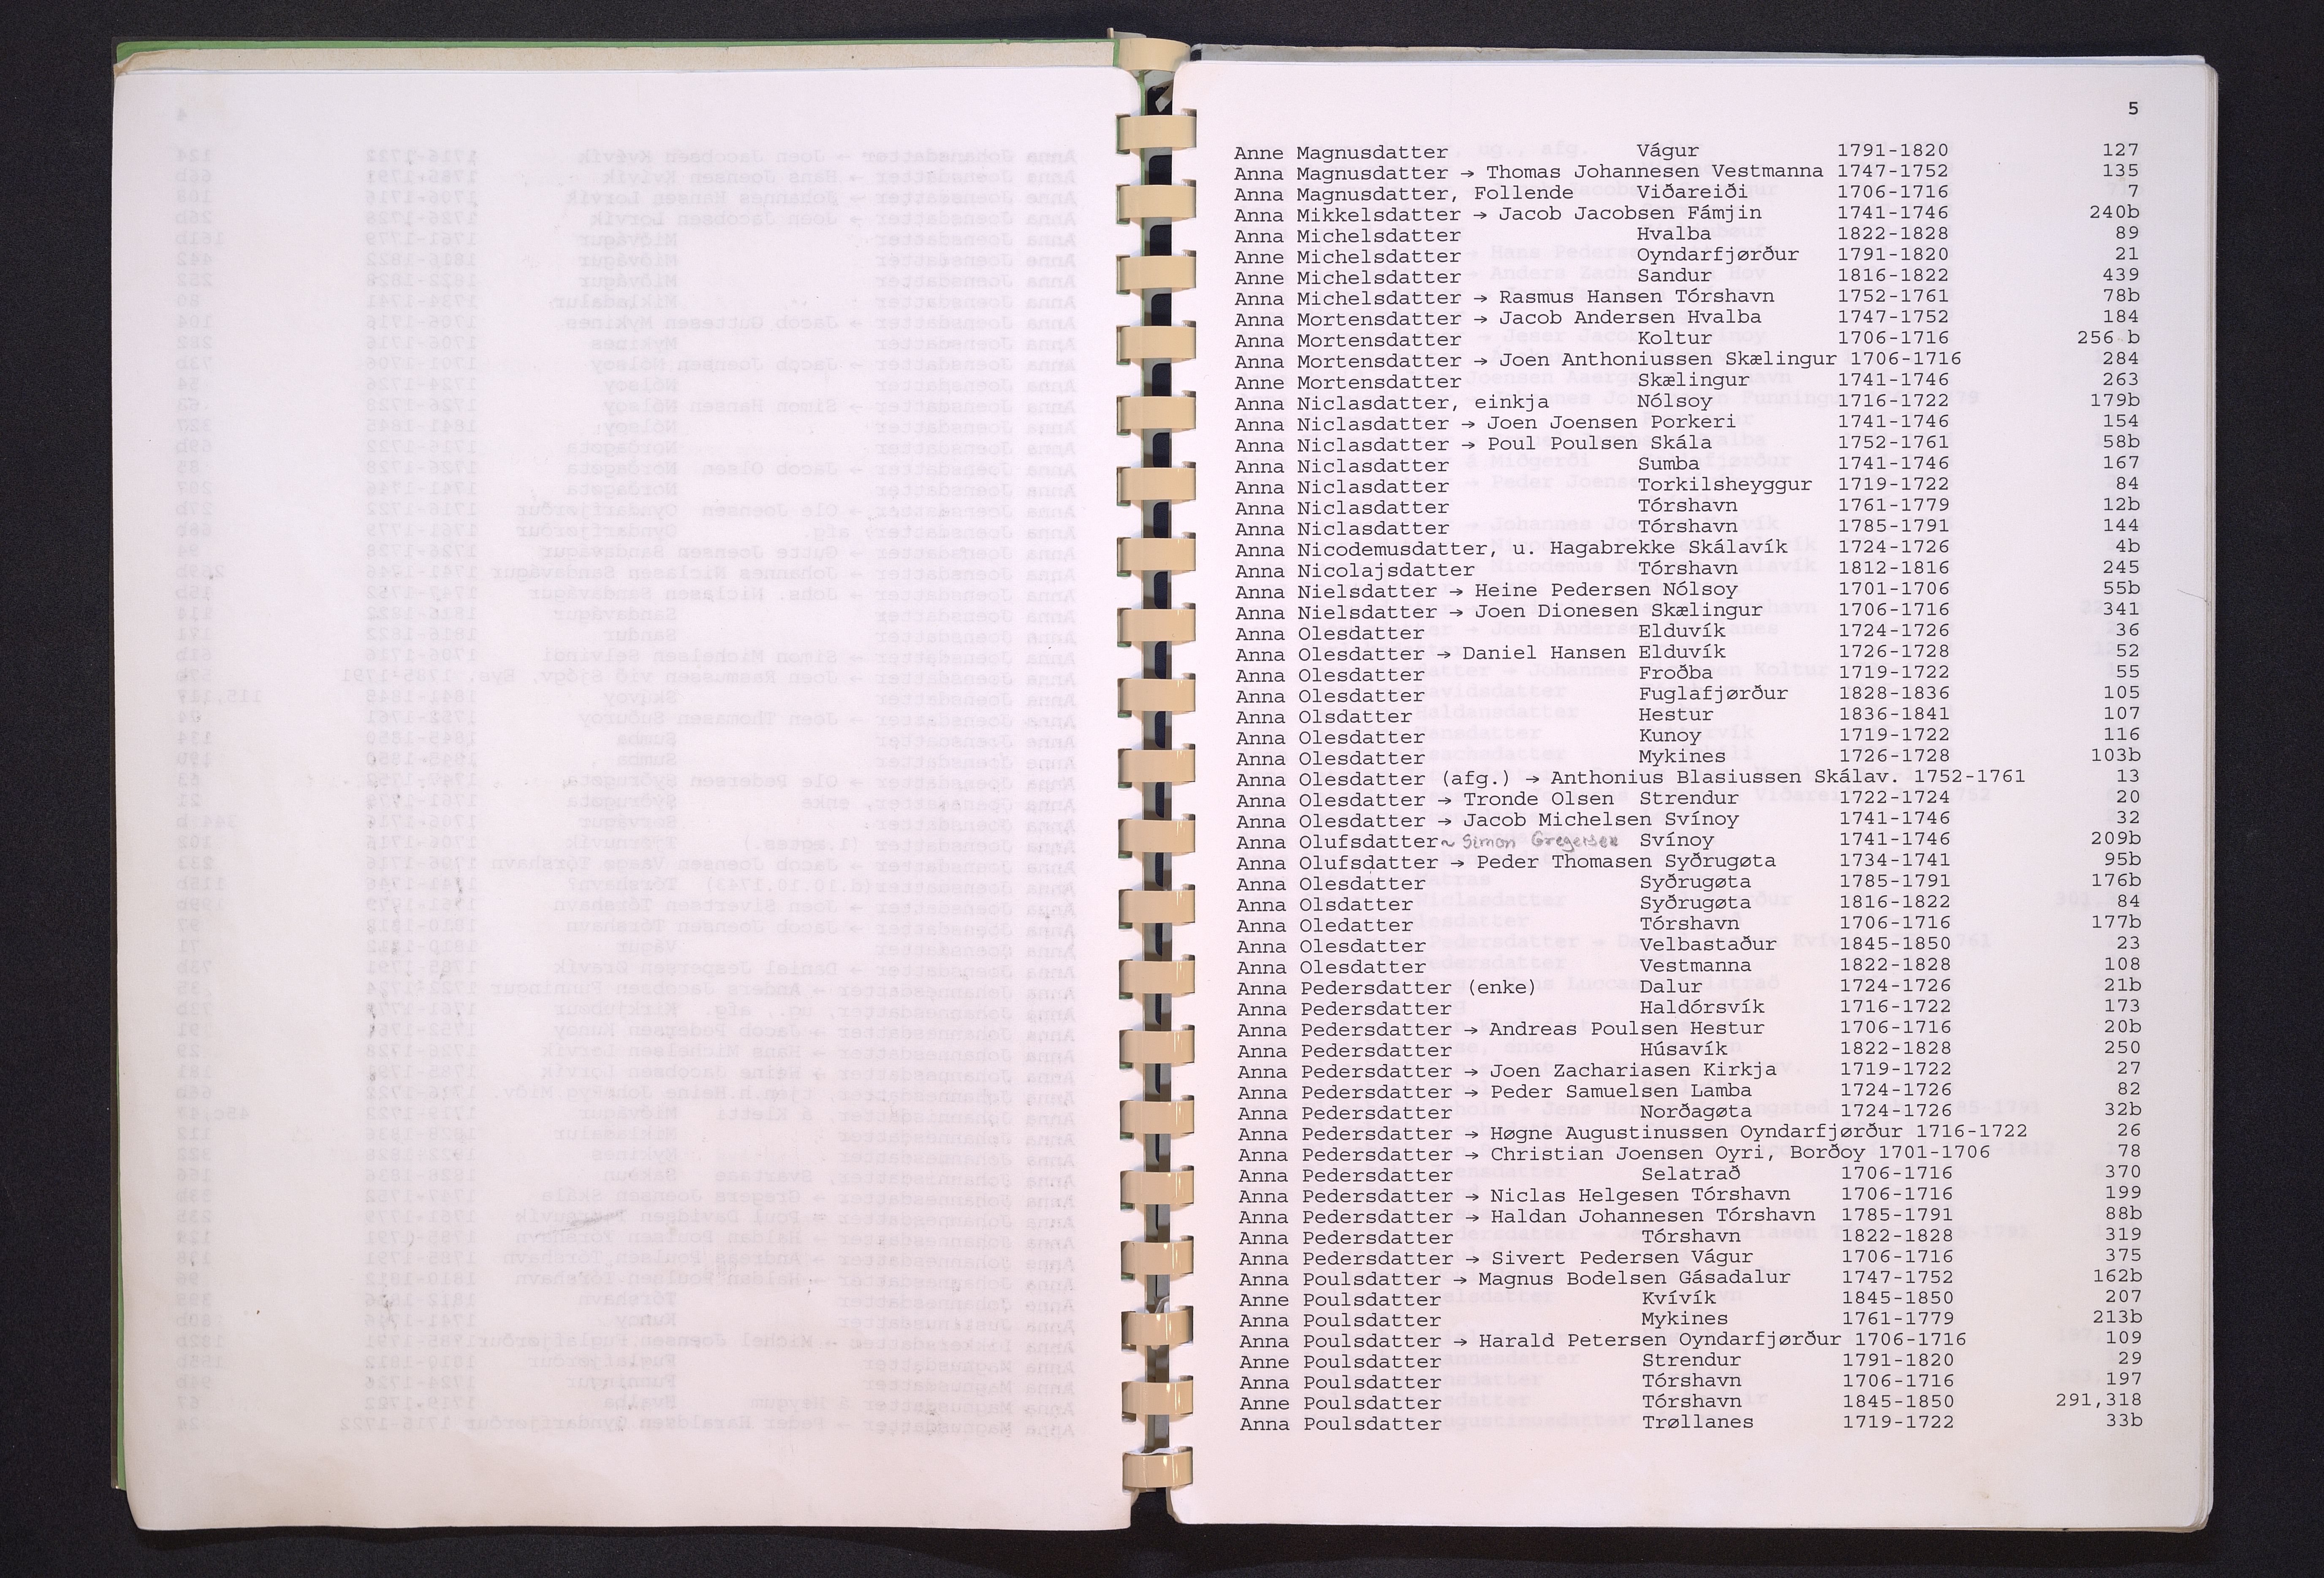 5
Anne Magnusdatter Vágur 1791-1820 127
Anna Magnusdatter → Thomas Johannesen Vestmanna 1747-1752 135
Anna Magnusdatter, Follende Viðareiði 1706-1716 7
Anna Mikkelsdatter → Jacob Jacobsen Fámjin 1741-1746 240b
Anna Michelsdatter Hvalba 1822-1828 89
Anne Michelsdatter Oyndarfjørður 1791-1820 21
Anne Michelsdatter Sandur 1816-1822 439
Anna Michelsdatter → Rasmus Hansen Tórshavn 1752-1761 78b
Anna Mortensdatter → Jacob Andersen Hvalba 1747-1752 184
Anna Mortensdatter Koltur 1706-1716 256 b
Anna Mortensdatter → Joen Anthoniussen Skælingur 1706-1716 284
Anne Mortensdatter Skælingur 1741-1746 263
Anna Niclasdatter, einkja Nólsoy 1716-1722 179b
Anna Niclasdatter → Joen Joensen Porkeri 1741-1746 154
Anna Niclasdatter → Poul Poulsen Skála 1752-1761 58b
Anna Niclasdatter Sumba 1741-1746 167
Anna Niclasdatter Torkilsheyggur 1719-1722 84
Anna Niclasdatter Tórshavn 1761-1779 12b
Anna Niclasdatter Tórshavn 1785-1791 144
Anna Nicodemusdatter, u. Hagabrekke Skálavík 1724-1726 4b
Anna Nicolajsdatter Tórshavn 1812-1816 245
Anna Nielsdatter → Heine Pedersen Nólsoy 1701-1706 55b
Anna Nielsdatter → Joen Dionesen Skælingur 1706-1716 341
Anna Olesdatter Elduvík 1724-1726 36
Anna Olesdatter → Daniel Hansen Elduvík 1726-1728 52
Anna Olesdatter Froðba 1719-1722 55
Anna Olesdatter Fuglafjørður 1828-1836 105
Anna Olsdatter Hestur 1836-1841 107
Anna Olesdatter Kunoy 1719-1722 116
Anna Olesdatter Mykines 1726-1728 103b
Anna Olesdatter (afg.) → Anthonius Blasiussen Skálav. 1752-1761 13
Anna Olesdatter → Tronde Olsen Strendur 1722-1724 20
Anna Olesdatter → Jacob Michelsen Svínoy 1741-1746 32
Anna Olufsdatter ~ Simon Gregersen Svínoy 1741-1746 209b
Anna Olufsdatter → Peder Thomasen Syðrugøta 1734-1741 95b
Anna Olesdatter Syðrugøta 1785-1791 176b
Anna Olsdatter Syðrugøta 1816-1822 84
Anna Oledatter Tórshavn 1706-1716 177b
Anna Olesdatter Velbastaður 1845-1850 23
Anna Olesdatter Vestmanna 1822-1828 108
Anna Pedersdatter (enke) Dalur 1724-1726 21b
Anna Pedersdatter Haldórsvík 1716-1722 173
Anna Pedersdatter → Andreas Poulsen Hestur 1706-1716 20b
Anna Pedersdatter Húsavík 1822-1828 250
Anna Pedersdatter → Joen Zachariasen Kirkja 1719-1722 27
Anna Pedersdatter → Peder Samuelsen Lamba 1724-1726 82
Anna Pedersdatter Norðagøta 1724-1726 32b
Anna Pedersdatter → Høgne Augustinussen Oyndarfjørður 1716-1722 26
Anna Pedersdatter → Christian Joensen Oyri, Borðoy 1701-1706 78
Anna Pedersdatter Selatrað 1706-1716 370
Anna Pedersdatter → Niclas Helgesen Tórshavn 1706-1716 199
Anna Pedersdatter → Haldan Johannesen Tórshavn 1785-1791 88b
Anna Pedersdatter Tórshavn 1822-1828 319
Anna Pedersdatter → Sivert Pedersen Vágur 1706-1716 375
Anna Poulsdatter → Magnus Bodelsen Gásadalur 1747-1752 162b
Anne Poulsdatter Kvívík 1845-1850 207
Anna Poulsdatter Mykines 1761-1779 213b
Anna Poulsdatter → Harald Petersen Oyndarfjørður 1706-1716 109
Anne Poulsdatter Strendur 1791-1820 29
Anna Poulsdatter Tórshavn 1706-1716 197
Anne Poulsdatter Tórshavn 1845-1850 291,318
Anna Poulsdatter Trøllanes 1719-1722 33b